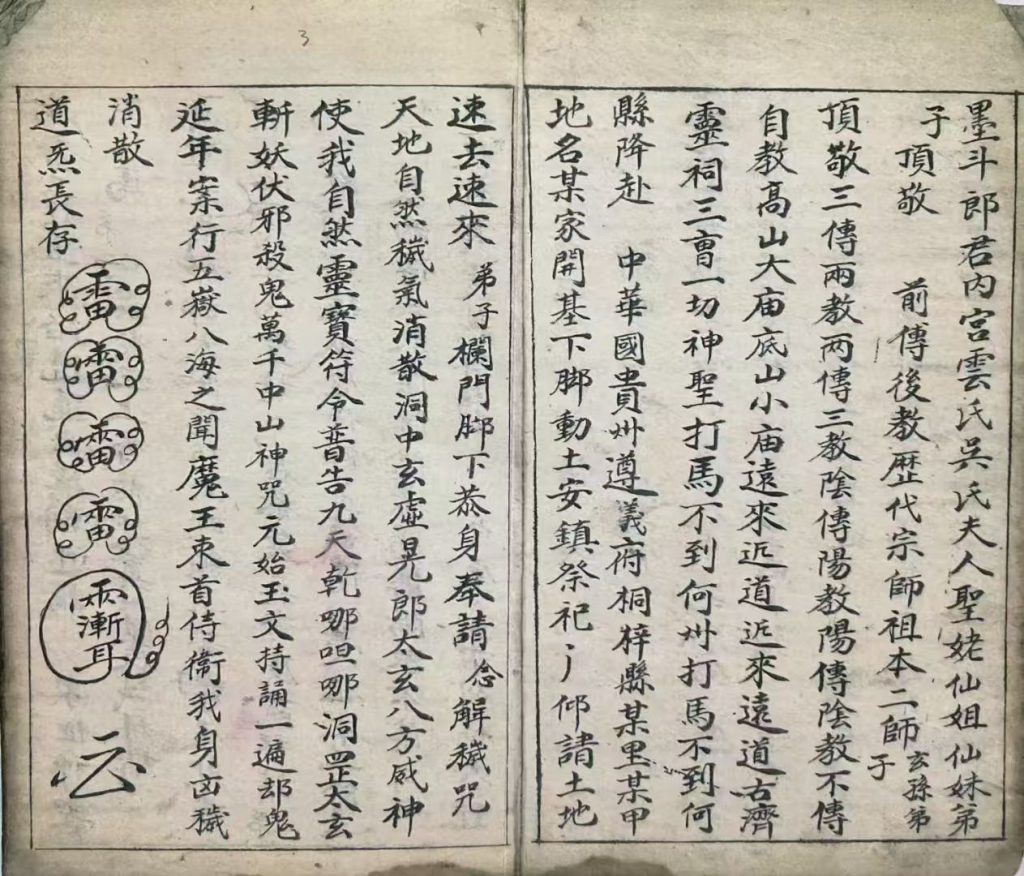 墨斗郎君内宮雲氏吳氏夫人聖姥仙姐仙妹弟
子頂敬 前傳後教歷代宗師祖本二師玄孫弟子
頂敬三傳兩教两傳三教陰傳陽教陽傳陰教不傳
自教高山大庙底山小庙遠來近道近來遠道古濟
靈祠三㑹一切神聖打馬不到何州打馬不到何
縣降赴 中華國貴州遵義府桐梓縣某里某甲
地名某家開基下脚動土安鎮祭祀冫仰請土地
速去速來弟子欄門脚下恭身奉請念解穢咒
天地自然穢氣消散洞中玄虛晃郎太玄八方威神
使我自然靈寶符令普告九天乾哪呾哪洞罡太玄
斬妖伏邪殺鬼萬千中山神咒元始玉文持誦一遍却鬼
延年案行五嶽八海之聞魔王束首侍衞我身凶穢
消散
道炁長存
雷
雷
雷
雷
云
3